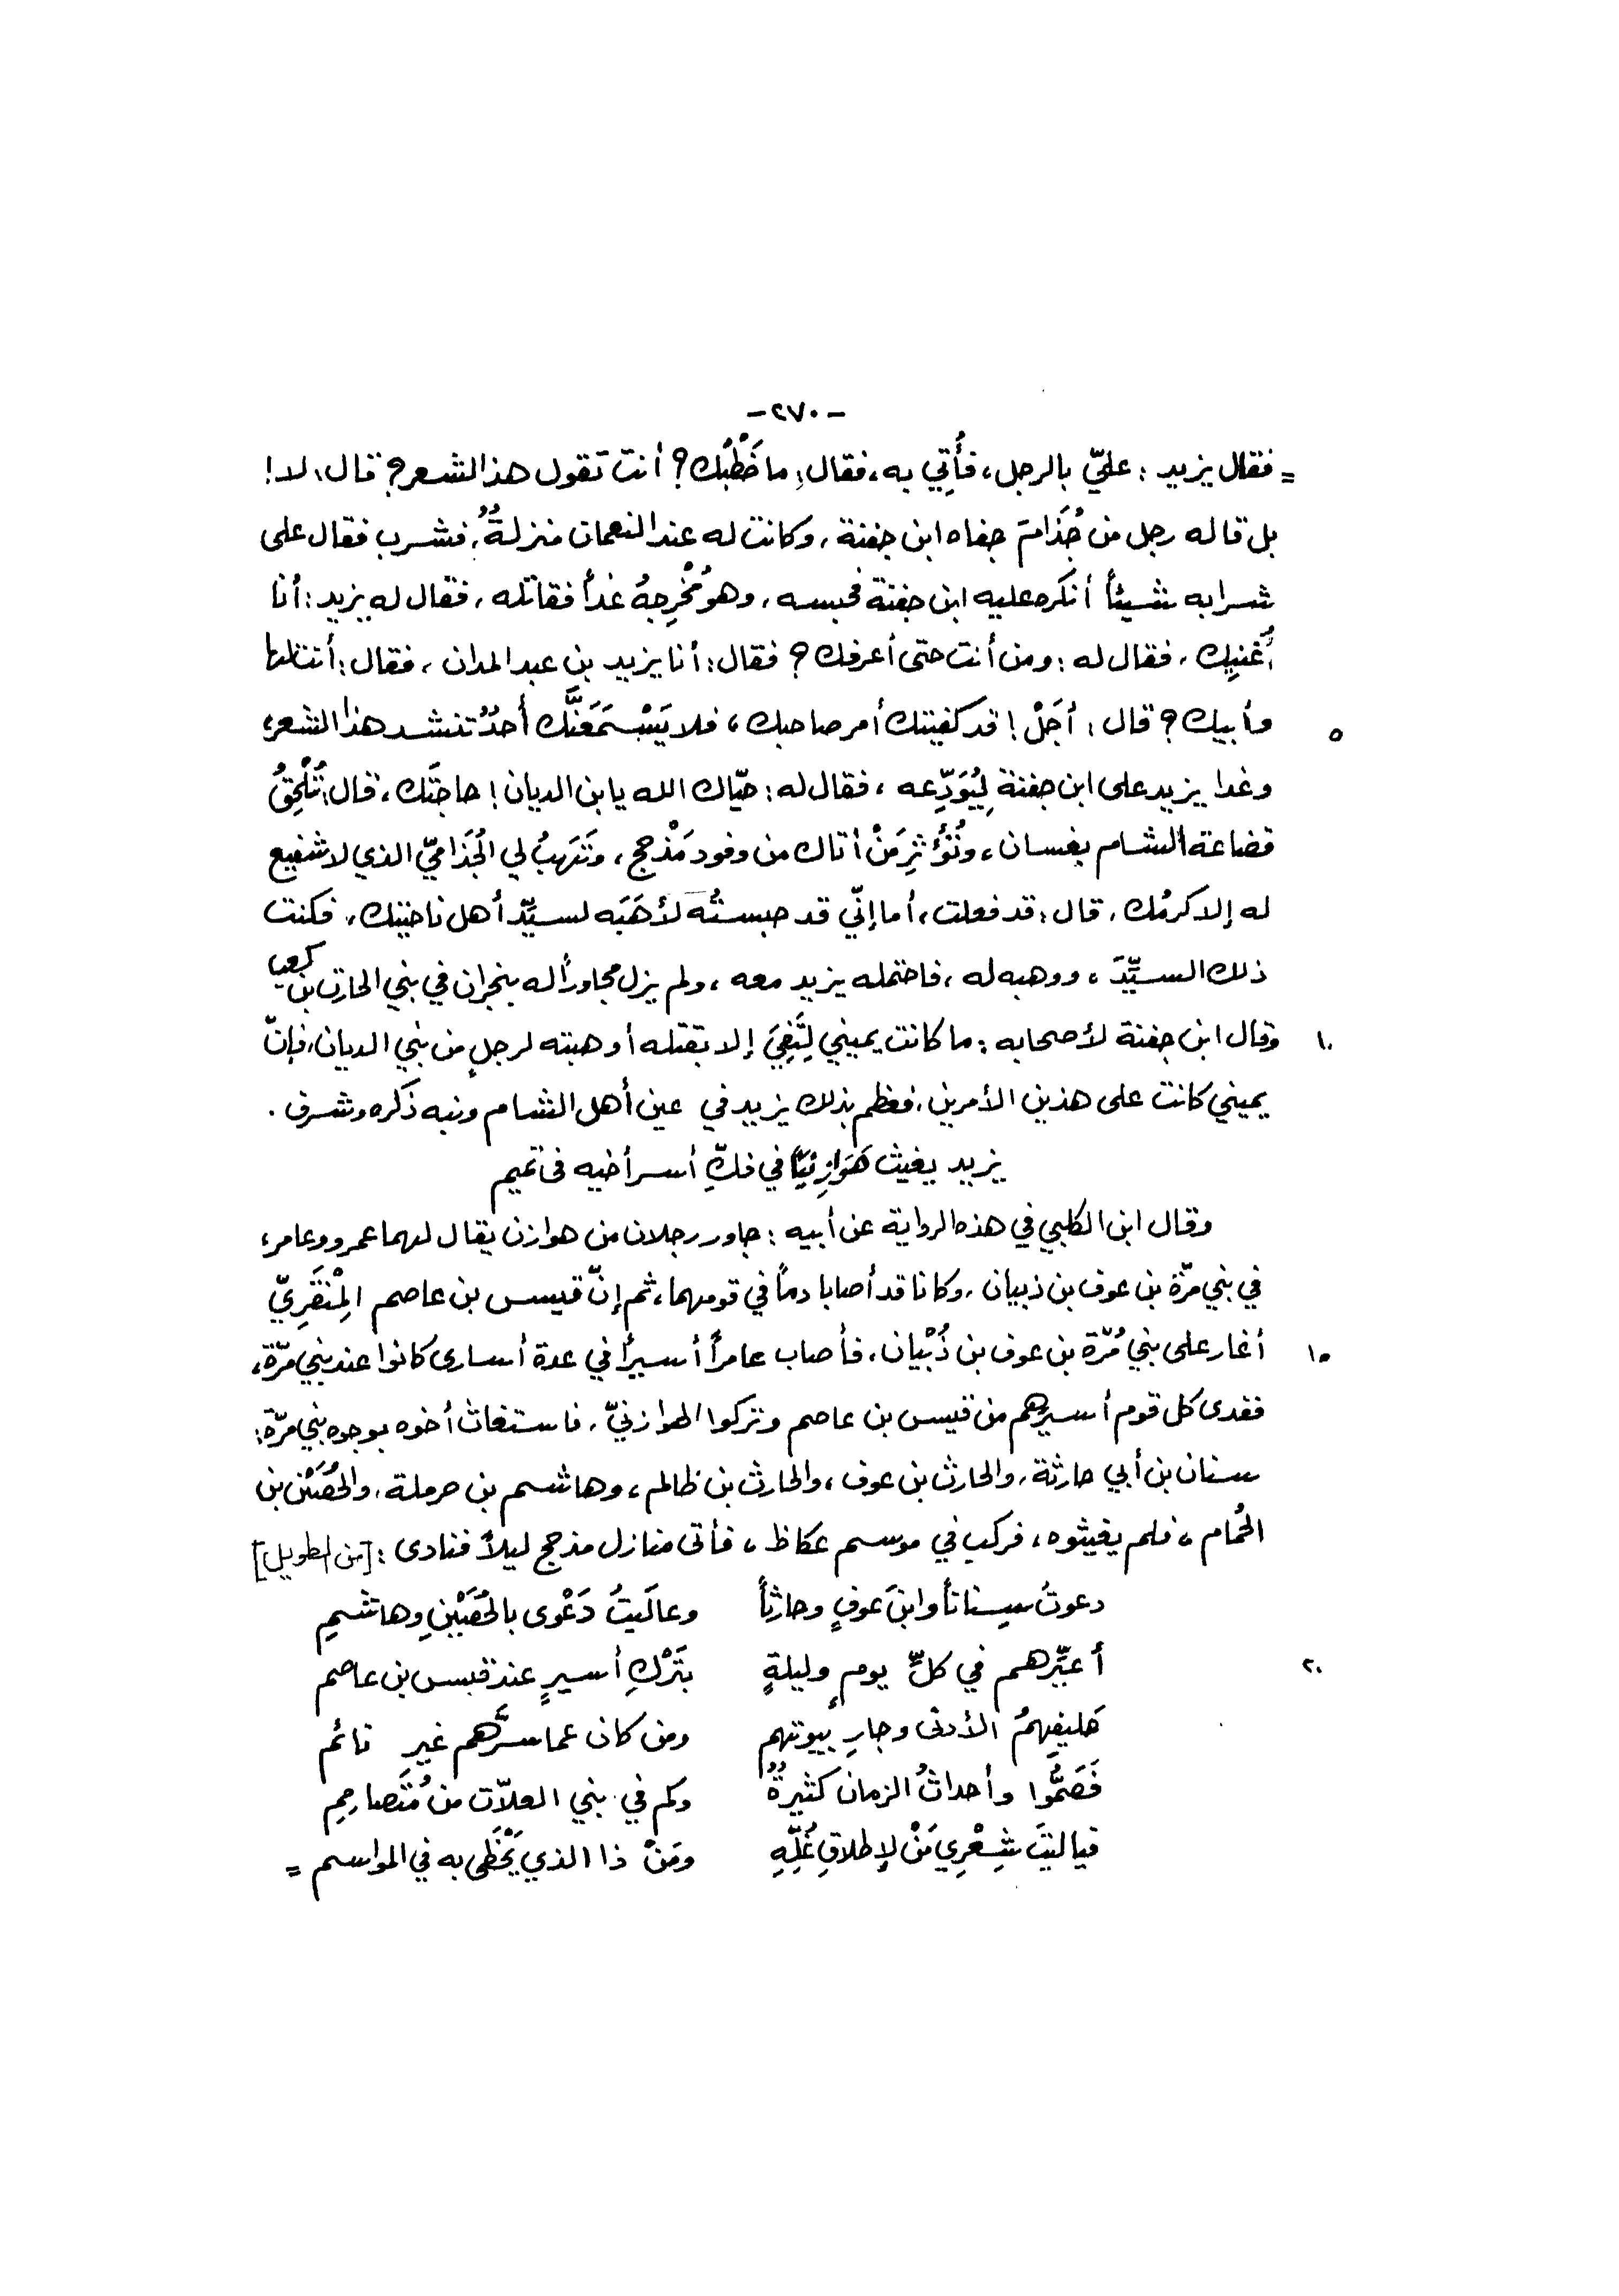 -٢٧٠-
= فقال يزيد : عليّ بالرجل، فأُتِي به، فقال: ما خَطْبُك؟ أنت تقول هذا الشعر؟ قال: لا!
بل قاله رجل من جُذَامَ جفاه ابن جفنة، وكانت له عند النعمان منزلةٌ، فشرب فقال على
شرابه شيئاً أنكره عليه ابن جفنة فحبسه، وهو مُخْرِجهُ غداً فقاتله، فقال له يزيد: أنا
أُغنيك، فقال له: ومن أنت حتى أعرفك؟ فقال: أنا يزيد بن عبد المدان، فقال: أنت لها
وأبيك؟ قال: أَجَلْ! قد كفيتك أمر صاحبك، فلا يَسْمَعَنَّك أحدٌ تنشد هذا الشعر،
٥
وغدا يزيد على ابن جفنة لِيُوَدِّعه، فقال له: حيّاك الله يا بن الديان! حاجتَك، قال: تُلْحِقُ
قضاعة الشام بغسان، وتُؤْثِر مَنْ أتاك من وفود مَذْحج، وتَهَبُ لي الجُذَاميّ الذي لا شفيع
له إلا كرمُك، قال: قد فعلت، أما إنّي قد حبستُه لأهَبَه لسيّد أهل ناحيتك، فكنت
ذلك السيّدَ، ووهبه له، فاحتمله يزيد معه، ولم يزل مجاوراً له بنجران في بني الحارث بن كعب
وقال ابن جفنة لأصحابه: ما كانت يميني لِتَفِيَ إلا بقتله أو هبته لرجلٍ من بني الديان، فإنّ
١٠
يميني كانت على هذين الأمرين، فعظم بذلك يزيد في عين أهل الشام ونبه ذكره وشرف .
يزيد يغيث هَوَازِنيّاً في فكِّ أسر أخيه في تميم
وقال ابن الكلبي في هذه الرواية عن أبيه: جاور رجلان من هوازن يقال لهما عمرو وعامر،
في بني مرّة بن عوف بن ذبيان، وكانا قد أصابا دماً في قومهما، ثم إنّ قيس بن عاصم المِنْقَرِيّ
أغار على بني مُرّة بن عوف بن ذُبْيان، فأصاب عامراً أسيراً في عدة أسارى كانوا عند بني مرّة،
١٥
ففدى كل قوم أسيرهم من قيس بن عاصم وتركوا الهوازنيّ، فاستغاث أخوه بوجوه بني مرّة:
سنان بن أبي حارثة، والحارث بن عوف، والحارث بن ظالم، وهاشم بن حرملة، والحُصَيْن بن
الحُمام، فلم يغيثوه، فركب في موسم عكاظ، فأتى منازل مذحج ليلاً فنادى: [من الطويل]
دعوتُ سِناناً وابنَ عوفٍ وحارثاً    وعاليتُ دَعْوى بالحُصَيْنِ وهاشمِ
أعيّرهم في كلِّ يومٍ وليلةٍ    بتَرْكِ أسيرٍ عند قيس بن عاصم
٢٠
حَليفِهمُ الأدنى وجارِ بيوتهم    ومن كان عما سرَّهم غيرِ نائم
فَصَمُّوا وأحداثُ الزمان كثيرةٌ    وكم في بني العلاّت من مُتَصاممِ
فيا ليتَ شِعْرِي مَنْ لإطلاقِ غُلِّهِ    ومَنْ ذا الذي يَحْظَى به في المواسم =